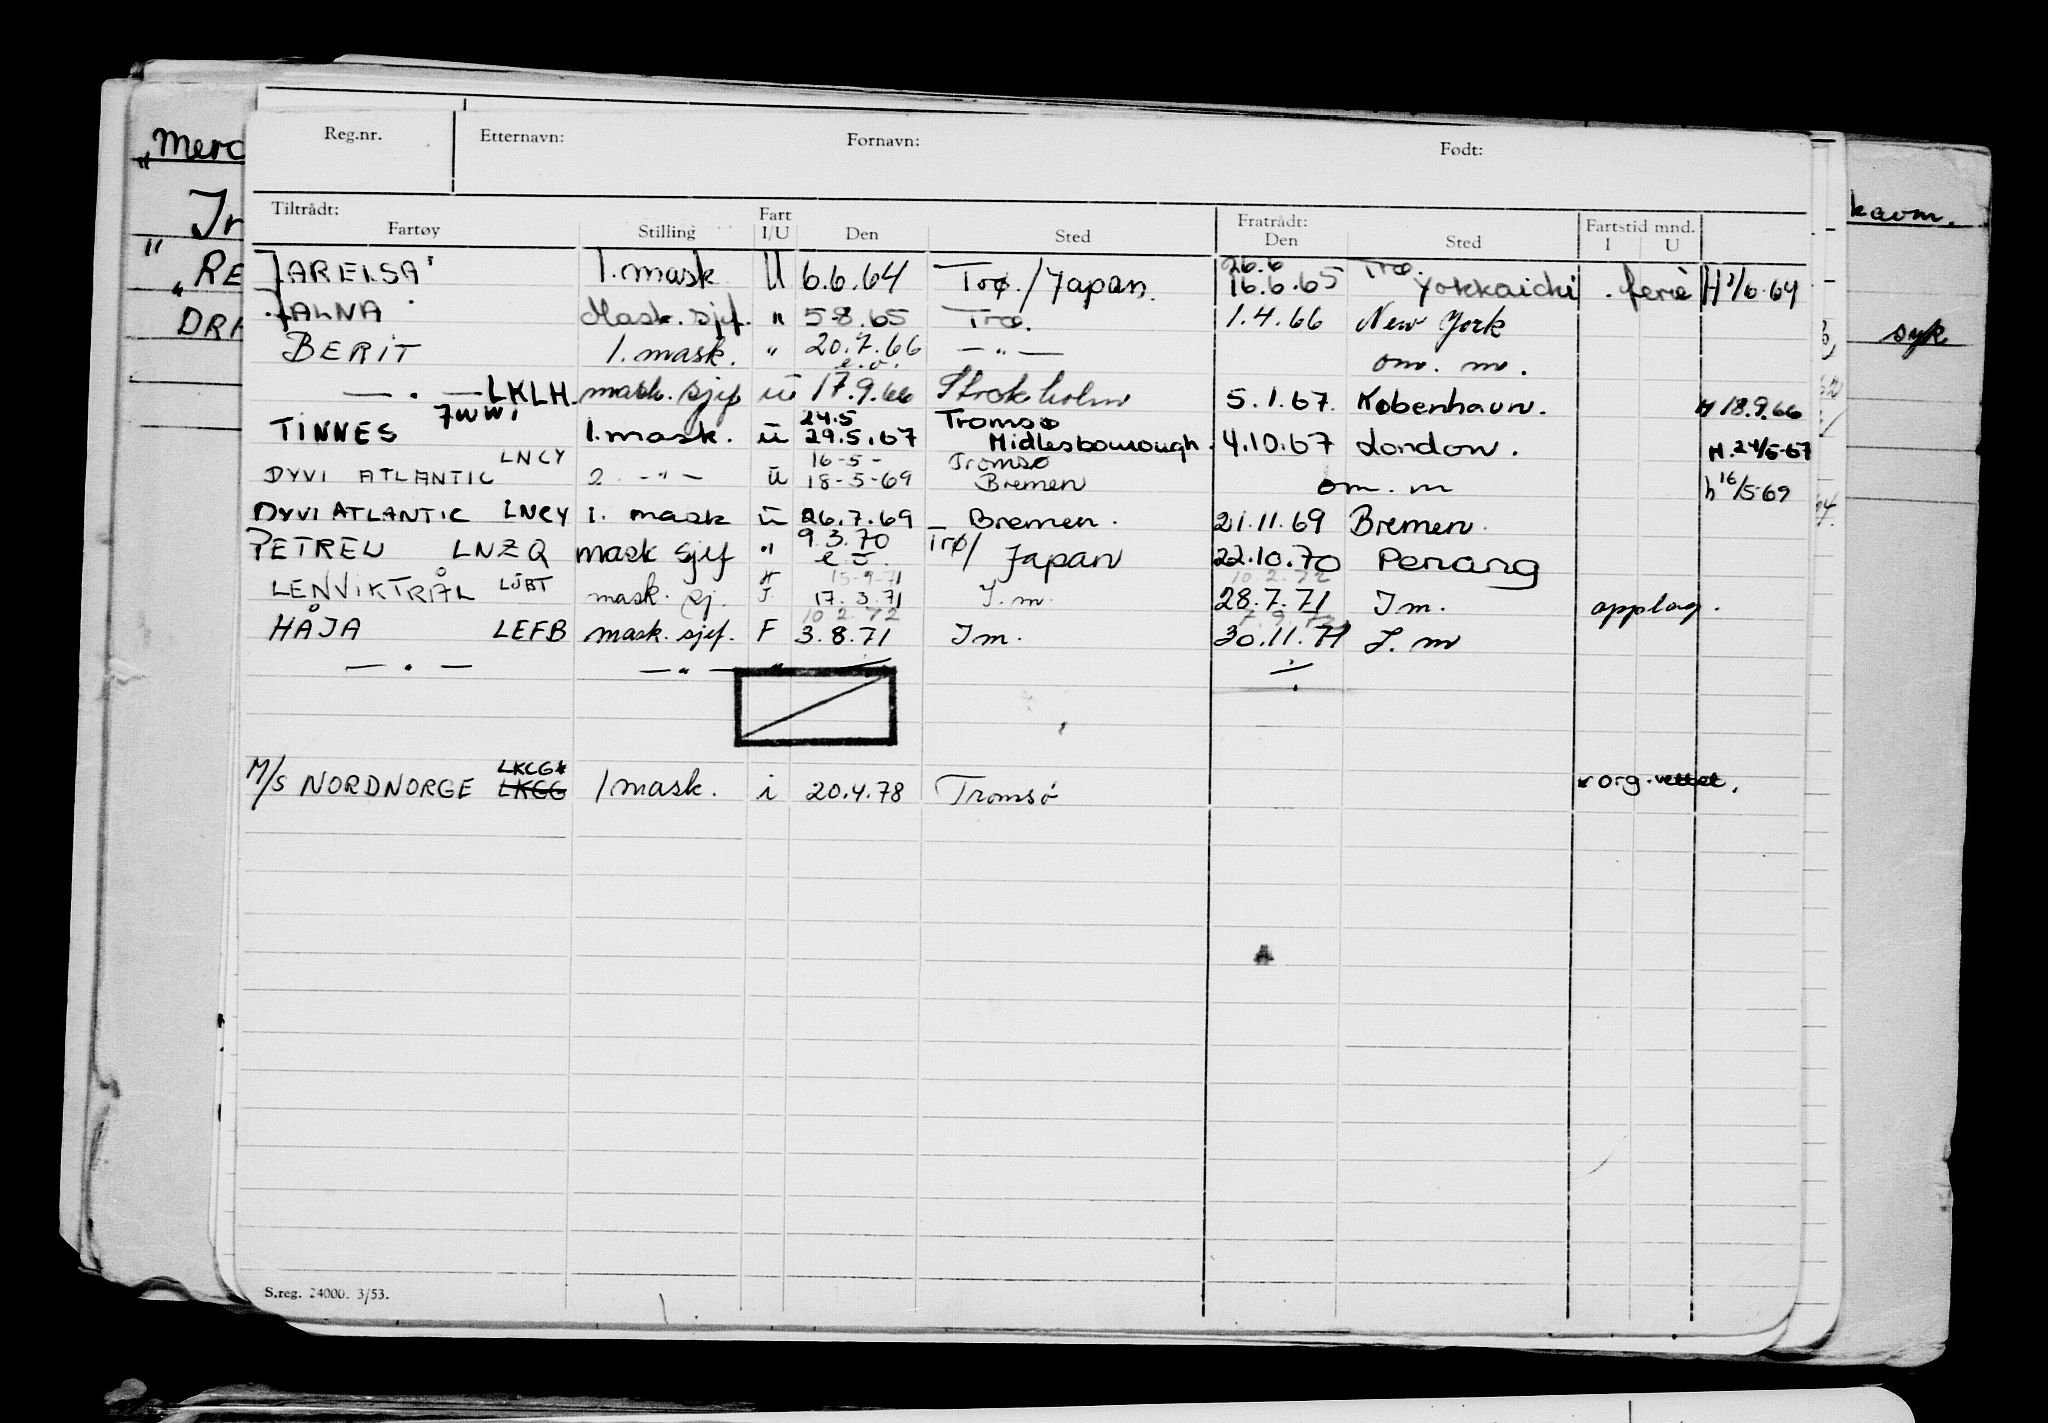 Reg.nr. Etternavn: Fornavn: Født:
Tiltrådt: Fart Fratrådt: Fartstid mnd.
Fartøy Stilling I/U Den Sted Den Sted I U
JARELSA 1. mask U 6.6.64 Trø./Japan. 26.6 16.6.65 Trø. Yokkaichi . ferie
JALNA Mask. sjef. " 5-8.65 Trø. 1.4.66 New York
BERIT 1. mask. " 20.7.66 — " — om. m.
e.o.
— " — LKLH. mask. sjef u 17.9.66 Stockholm 5.1.67. København. H 18.9.66
TINNES 7WWI 1. mask. u 24.5 29.5.67 Tromsø Midlesbourough. 4.10.67 London. H. 24/5-67
DYVI ATLANTIC LNCY 2. — " — u 16-5- 18-5-69 Tromsø Bremen om. m h 16/5-69
DYVI ATLANTIC LNCY 1. mask u 26.7.69 Bremen. 21.11.69 Bremen.
PETREL LNZQ mask sjef " 9.3.70 Trø/ Japan 22.10.70 Penang
LENVIKTRÅL mask. sj. 15-9-71 17.3.71 I.m. 10.2.72 28.7.71 I m. opplag.
HÅJA LEFB mask. sjef. F 10.2.72 3.8.71 I m. 30.11.71 I. m
— " — — " — "
M/S NORDNORGE LKCG LKGG 1 mask. i 20.4.78 Tromsø
S.reg. 24000. 3/53.
"Merc
"
RE
DRA
syk